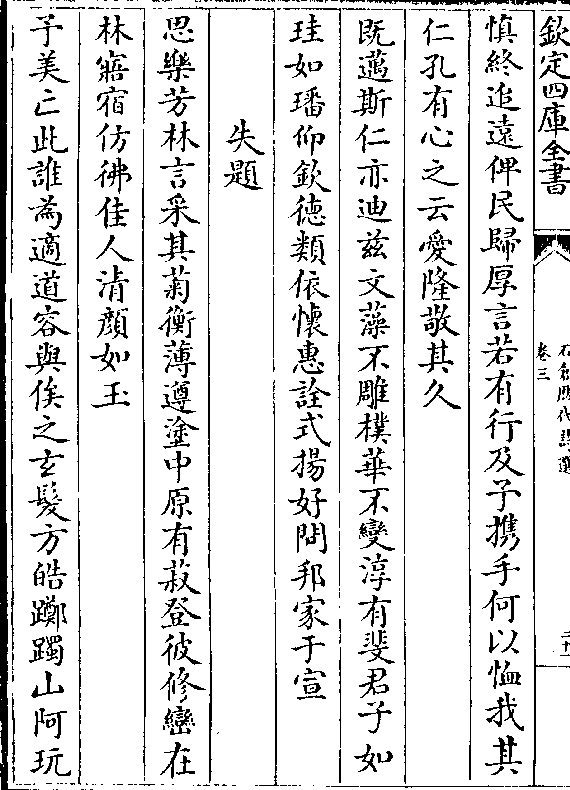 欽定四庫全書
石倉歷代詩選
卷三
慎終追遠俾民歸厚言若有行及子攜手何以恤我其
仁孔有心之云愛隆敬其久
既邁斯仁亦迪兹文藻不雕樸華不變淳有斐君子如
珪如璠仰欽德類依懷惠詮式揚好問邦家于宣
失題
思樂芳林言采其菊衡薄遵塗中原有菽登彼修巒在
林寤宿仿彿佳人清顔如玉
予美亡此誰為適道容與俟之玄髮方皓躑躅山阿玩